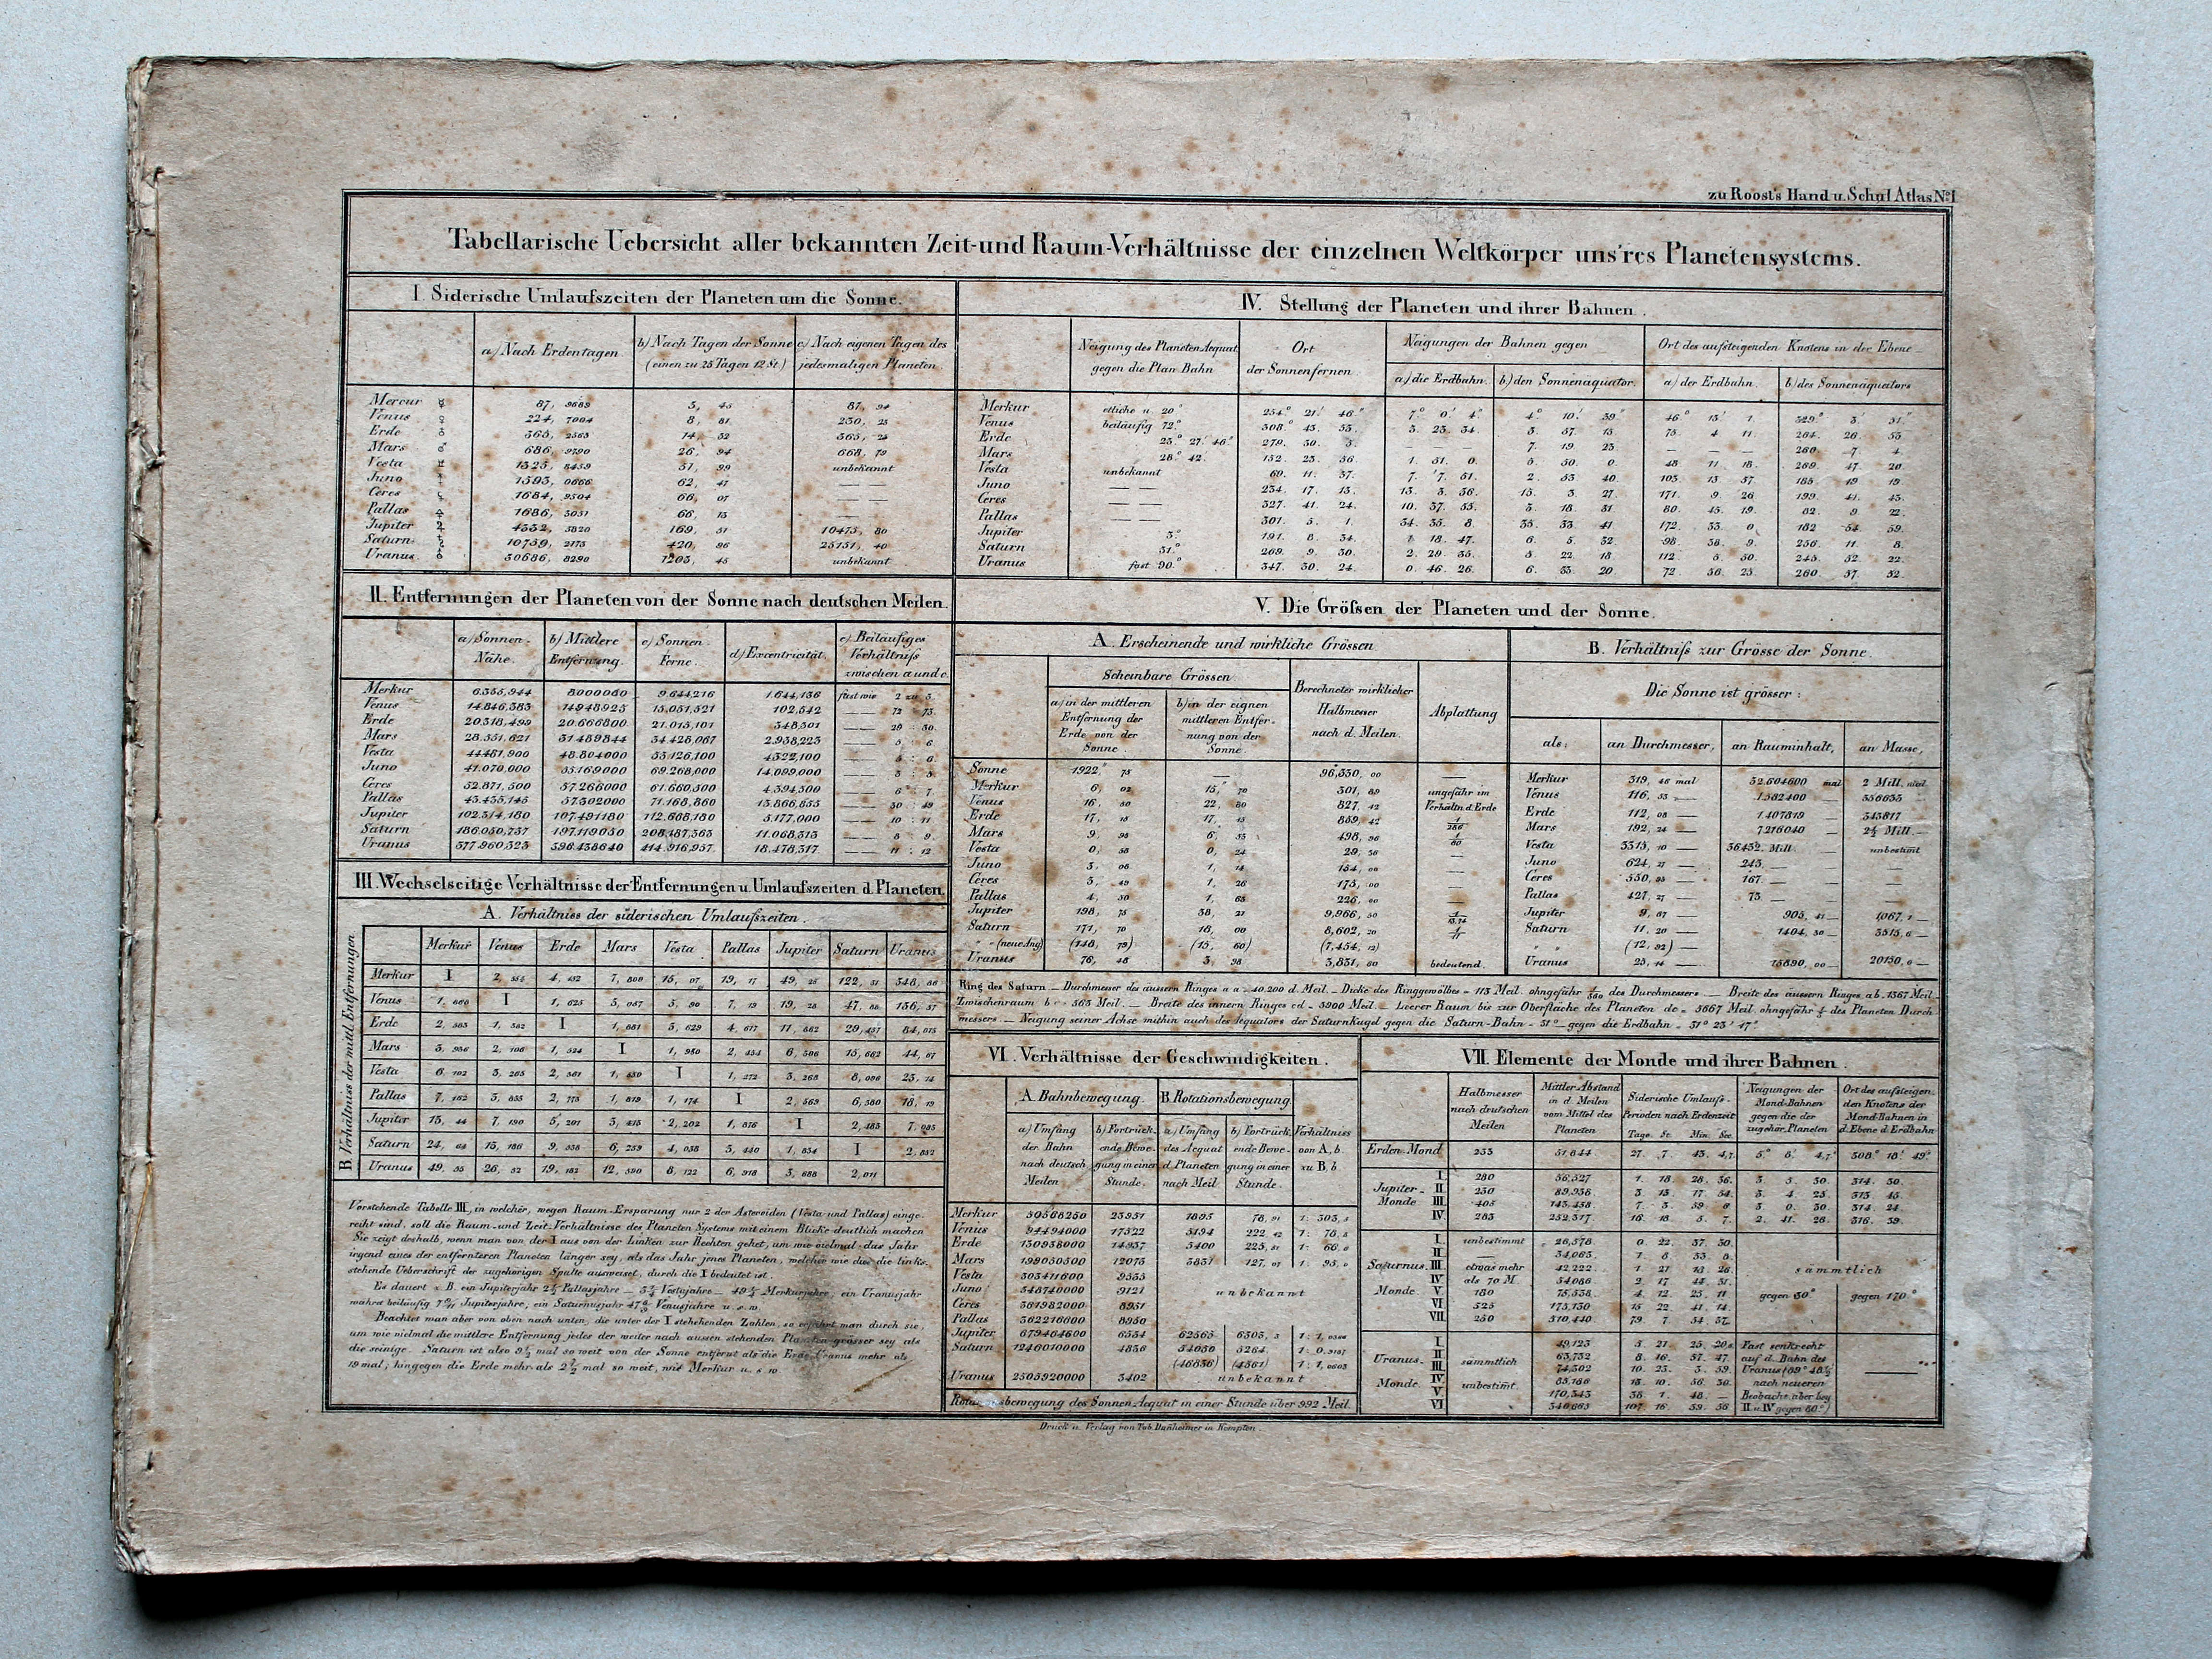 zu Roost's Hand u. Schul Atlas No. I
Tabellarische Uebersicht aller bekannten Zeit- und Raum-Verhältnisse der einzelnen Weltkörper uns'res Planetensystems.
I. Siderische Umlaufszeiten der Planeten um die Sonne.
a) Nach Erdentagen b) Nach Tagen der Sonne (einen zu 25 Tagen 12 St) c) Nach eigenen Tagen des jedesmaligen Planeten.
Mercur ☿ 87, 9689 3, 45 87, 94
Venus ♀ 224, 7004 8, 81 230, 25
Erde ♁ 365, 2563 14, 32 365, 24
Mars ♂ 686, 9790 26, 94 668, 79
Vesta 1325, 8459 51, 99 unbekannt
Juno 1593, 0666 62, 47 — —
Ceres 1684, 9504 66, 07 — —
Pallas 1686, 3051 66, 13 — —
Jupiter ♃ 4332, 5820 169, 51 10473, 80
Saturn ♄ 10759, 2173 420, 96 25151, 40
Uranus 30686, 8290 1203, 45 unbekannt
II. Entfernungen der Planeten von der Sonne nach deutschen Meilen.
a) Sonnen-Nähe. b) Mittlere Entfernung. c) Sonnen-Ferne. d) Excentricität. e) Beiläufiges Verhältniſs zwischen a und c.
Merkur 6.355,944 8000080 9.644,216 1.644,136 fast wie 2 zu 3.
Venus 14.846,383 14948925 15,051,321 102,542 — 72 : 73.
Erde 20.318,499 20.666800 21.015,101 348,301 — 29 : 30.
Mars 28.551,621 31489844 34.428,067 2.938,223 — 5 : 6
Vesta 44481,900 48.804000 53.126,100 4322,100 — 5 : 6.
Juno 41.070,000 55.169000 69.268,000 14,099,000 — 3 : 5.
Ceres 52.871,500 57.266000 61.660,300 4,394,300 — 6 : 7.
Pallas 43.435,145 57.302000 71.168,860 13,866,855 — 30 : 49
Jupiter 102.314,180 107.491180 112.668,180 5.177,000 — 10 : 11
Saturn 186.050,737 197.119050 208,187,363 11.068,313 — 8 : 9.
Uranus 377.960,323 396.438640 414.916,957 18.478,317 — 11 : 12
III. Wechselseitige Verhältnisse der Entfernungen u. Umlaufszeiten d. Planeten.
A. Verhältniss der siderischen Umlaufszeiten.
B. Verhältnis der mittl. Entfernungen
Merkur Venus Erde Mars Vesta Pallas Jupiter Saturn Uranus
Merkur I 4, 152 7, 808 15, 07 19, 17 49, 25 122, 31 348, 86
Venus I 1, 625 3, 057 5, 90 7, 19 19, 28 47, 88 136, 57
Erde 2, 583 1, 382 I 1, 881 3, 629 4, 617 11, 862 29, 457 84, 015
Mars 3, 936 2, 106 1, 524 I 1, 930 2, 454 6, 306 15, 662 44, 67
Vesta 6, 102 3, 265 2, 361 I 1, 272 3, 268 8, 096 23, 14
Pallas 7, 162 3, 833 2, 773 1, 819 1, 174 I 2, 569 6, 380 18, 19
Jupiter 13, 44 7, 190 5, 201 3, 413 2, 202 1, 876 I 2, 483 7, 085
Saturn 24, 64 13, 186 9, 538 6, 259 4, 038 3, 440 1, 834 I 2, 852
Uranus 49, 55 26, 52 19, 182 12, 590 8, 122 6, 918 3, 688 2, 011
Vorstehende Tabelle III, in welcher, wegen Raum-Ersparung nur 2 der Asteroiden (Vesta und Pallas) einge-
reiht sind, soll die Raum- und Zeit-Verhältnisse des Planeten Systems mit einem Blicke deutlich machen
Sie zeigt deshalb, wenn man von der I aus von der Linken zur Rechten gehet, um wie vielmal das Jahr
irgend eines der entfernteren Planeten länger sey, als das Jahr jenes Planeten, welcher wie dies die links
stehende Ueberschrift der zugehörigen Spalte ausweiset, durch die I bedeutet ist.
Es dauert z. B. ein Jupiterjahr 2½ Pallasjahre — 3¼ Vestajahre — 49¼ Merkurjahre, ein Uranusjahr
währet beiläufig Jupiterjahre, ein Saturnusjahr Venusjahre u. s. w.
Beachtet man aber von oben nach unten, die unter der I stehenden Zahlen, so erfährt man durch sie,
um wie vielmal die mittlere Entfernung jedes der weiter nach aussen stehenden Planeten grösser sey als
die seinige. Saturn ist also 9½ mal so weit von der Sonne entfernt als die Erde, Uranus mehr als
19 mal; hingegen die Erde mehr als 2½ mal so weit, wie Merkur u. s. w.
IV. Stellung der Planeten und ihrer Bahnen.
Neigung des Planeten Aequat. gegen die Plan. Bahn Ort der Sonnenfernen. Neigungen der Bahnen gegen Ort des aufsteigenden Knotens in der Ebene
a) die Erdbahn. b) den Sonnenaquator. a) der Erdbahn. b) des Sonnenaquators
Merkur etliche u. 20° 254.° 21.' 46." 7° 0' 4." 4.° 10.' 39." 46° 13' 1. 329.° 3.' 31."
Venus beiläufig 72° 308.° 43. 53. 3. 23. 34. 3. 57. 13 75. 4 11. 264. 26. 53
Erde 23° 27.' 46." 279. 30. 5. — — 7. 19. 23 — — — 260 7. 4.
Mars 28.° 42.' 152. 23. 36 1. 51. 0. 5. 50. 0. 48 11. 18. 269. 47. 20
Vesta unbekannt 69. 11. 37. 7. 7. 51. 2. 53 40. 103. 13 37 185. 19 19
Juno — — 234. 17. 13. 13. 3. 36. 13. 3. 27 171. 9. 26 199. 41. 43.
Ceres — — 327. 41. 24. 10. 37. 53. 3. 18 31 80. 45. 19. 82. 9 22.
Pallas — — 301. 5. 1. 34. 35. 8. 35. 33 41 172. 33. 0. 182 54. 59.
Jupiter 3.° 191. 8. 34. 1. 18. 47. 6. 5. 32 98. 38. 9. 236. 11. 8.
Saturn 31.° 269. 9. 30. 2. 29. 35. 5. 22. 18 112 5 30. 245. 52. 22.
Uranus fast 90.° 347. 30. 24. 0. 46. 26. 6. 33. 20 72. 56. 23. 260. 37. 52.
V. Die Gröſsen der Planeten und der Sonne.
A. Erscheinende und wirkliche Grössen.
Scheinbare Grössen.
a) in der mittleren Entfernung der Erde von der Sonne. b) in der eignen mittleren Entfernung von der Sonne. Berechneter wirklicher Halbmesser nach d. Meilen. Abplattung
Sonne 1922." 75 — 96,330, 00 —
Merkur 6, 02 15," 70 301, 89 ungefähr im
Venus 16, 50 22, 80 827, 42 Verhältn d. Erde
Erde 17, 15 17, 15 859, 42
Mars 9, 95 6, 53 498, 96
Vesta 0, 58 0, 24 29, 56 —
Juno 3, 06 1, 14 154, 08
Ceres 3, 49 1, 26 175, 00 —
Pallas 4, 50 1, 65 226, 00 —
Jupiter 198, 75 38, 21 9,966, 50
Saturn 171, 70 18, 00 8,602, 20
" " (neue Ang) (148, 79) (15, 60) (7,454, 12)
Uranus 76, 48 3, 98 3,831, 60 bedeutend.
B. Verhältniſs zur Grösse der Sonne.
Die Sonne ist grösser:
als: an Durchmesser, an Rauminhalt, an Masse,
Merkur 319, 46 mal 32.604600 mal 2 Mill. mal
Venus 116, 53 — 1.582400 — 356633
Erde 112, 08 — 1.407819 — 343817
Mars 192, 24 — 7216040 — 2½ Mill. —
Vesta 3313, 10 — 36432. Mill. — unbestimt
Juno 624, 27 — 243. — —
Ceres 550, 95 — 167. — —
Pallas 427, 27 — 75 — —
Jupiter 9, 67 — 905, 41 — 1067, 1 —
Saturn 11, 20 — 1404, 50 — 3513, 6 —
" " (12, 92) —
Uranus 25, 14 — 15890, 00 — 20150, 0 —
Ring des Saturn. — Durchmesser des äussern Ringes a a = 40.200 d. Meil. — Dicke des Ringgewölbes = 113 Meil. ohngefähr des Durchmessers. — Breite des äussern Ringes a b. 1367 Meil. —
Zwischenraum b c = 363 Meil. — Breite des innern Ringes c d = 3900 Meil. — Leerer Raum bis zur Oberfläche des Planeten d e = 5667 Meil. ohngefähr ⅓ des Planeten Durch-
messers. — Neigung seiner Achse mithin auch des Aequators der Saturnkugel gegen die Saturn-Bahn = 31° — gegen die Erdbahn = 31° 23' 47"
VI. Verhältnisse der Geschwindigkeiten.
A. Bahnbewegung. B. Rotationsbewegung.
a) Umfang der Bahn nach deutsch Meilen b) Fortrückende Bewegung in einer Stunde. a) Umfang des Aequat. d. Planeten nach Meil. b) Fortrückende Bewegung in einer Stunde. Verhältniss von A, b. zu B, b
Merkur 50566250 23951 1895 78, 91 1: 303, 5
Venus 94494000 17522 5194 222, 42 1: 78, 8
Erde 130938000 14937 5400 225, 51 1: 66, 0
Mars 199080500 12073 3051 127, 07 1: 95, 0
Vesta 303411600 9535
Juno 348740000 9121 unbekannt
Ceres 361982000 8951
Pallas 362216600 8950
Jupiter 679404600 6534 62565 6303, 3 1: 1, 0366
Saturn 1246010000 4836 54030 5264. 1: 0, 9187
(46836) (4561) 1: 1, 0603
Uranus 2505920000 3402 unbekannt
Rotationsbewegung des Sonnen-Aequat in einer Stunde über 992 Meil.
VII. Elemente der Monde und ihrer Bahnen.
Halbmesser nach deutschen Meilen Mittler Abstand in d. Meilen vom Mittel des Planeten Siderische Umlaufs-Perioden nach Erdenzeit Tage. St. Min. Sec. Neigungen der Mond-Bahnen gegen die der zugehör. Planeten Ort des aufsteigenden Knotens der Mond-Bahnen in d. Ebene d. Erdbahn
Erden-Mond 233 51,844 27. 7. 43. 4,7. 5.° 8.' 4,7." 308.° 18.' 49."
Jupiter-Monde
I. 280 56,527 1. 18. 28. 36. 3. 5. 30. 314. 30.
II. 230 89,936. 3 13 17 54. 3. 4. 25. 313 45.
III. 405 143,458. 7. 3. 59. 6 3 0. 30 314. 24.
IV. 283 252,317. 16. 18. 5. 7. 2. 41. 28. 316. 39.
Saturnus-Monde
I. unbestimmt 26,578. 0. 22. 37. 30.
II. — 34,065. 1. 8. 53. 9.
III. etwas mehr 42,222. 1 21 18 26. sammtlich
IV. als 70 M. 54086 2 17 44. 51.
V 180 75,538. 4. 12. 25. 11 gegen 30° gegen 170°
VI 525 175,130 15 22 41 14.
VII. 250 510,440 79. 7 54. 37.
Uranus-Monde sammtlich unbestimt.
I. 49,123 5. 21. 25. 20. Fast senkrecht
II. 63,732 8. 16. 57. 47. auf d. Bahn des
III. 74,302 10. 23. 3. 59. Uranus
IV. 85,186 13. 10. 56. 30. nach neueren
V. 170,343 38 1. 48. — Beobacht. aber bey
VI. 340,663 107 16 39. 56 II u. IV gegen 80°)
Druck u. Verlag von Tob. Danheimer in Kempten.